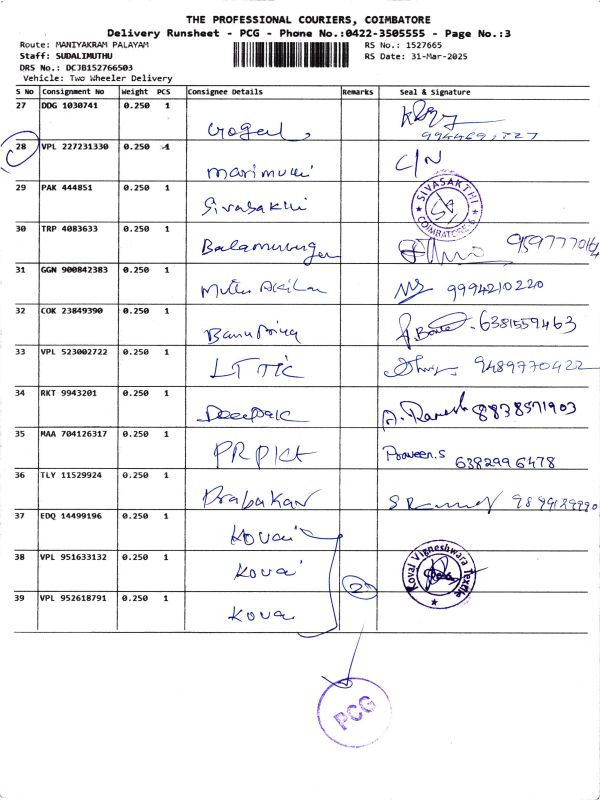 THE PROFESSIONAL COURIERS, COIMBATORE
Delivery Runsheet - PCG - Phone No.:0422-3505555 - Page No.:3
Route: MANIYAKRAM PALAYAM RS No.: 1527665
Staff: SUDALIMUTHU RS Date: 31-Mar-2025
DRS No.: DCJB152766503
Vehicle: Two Wheeler Delivery
S No Consignment No Weight PCS Consignee Details Remarks Seal & Signature
27 DDG 1030741 0.250 1 Gogul
28 VPL 227231330 0.250 1 Marimuthu C/N
29 PAK 444851 0.250 1 Sivasakthi SIVASAKTHI COIMBATORE
30 TRP 4083633 0.250 1 Balamurugan
31 GGN 900842383 0.250 1 Muthu Akilan 9994210220
32 COK 23849390 0.250 1 Banu Priya 6381559463
33 VPL 523002722 0.250 1 LTTIC 9489770422
34 RKT 9943201 0.250 1 Deepak A. Ramesh 8838571903
35 MAA 704126317 0.250 1 PRPICT Praveen.S 6382996478
36 TLY 11529924 0.250 1 Prabakar
37 EDQ 14499196 0.250 1 Kovai
38 VPL 951633132 0.250 1 Kovai Koval Vigneshwara Textile
39 VPL 952618791 0.250 1 Kovai
PCG